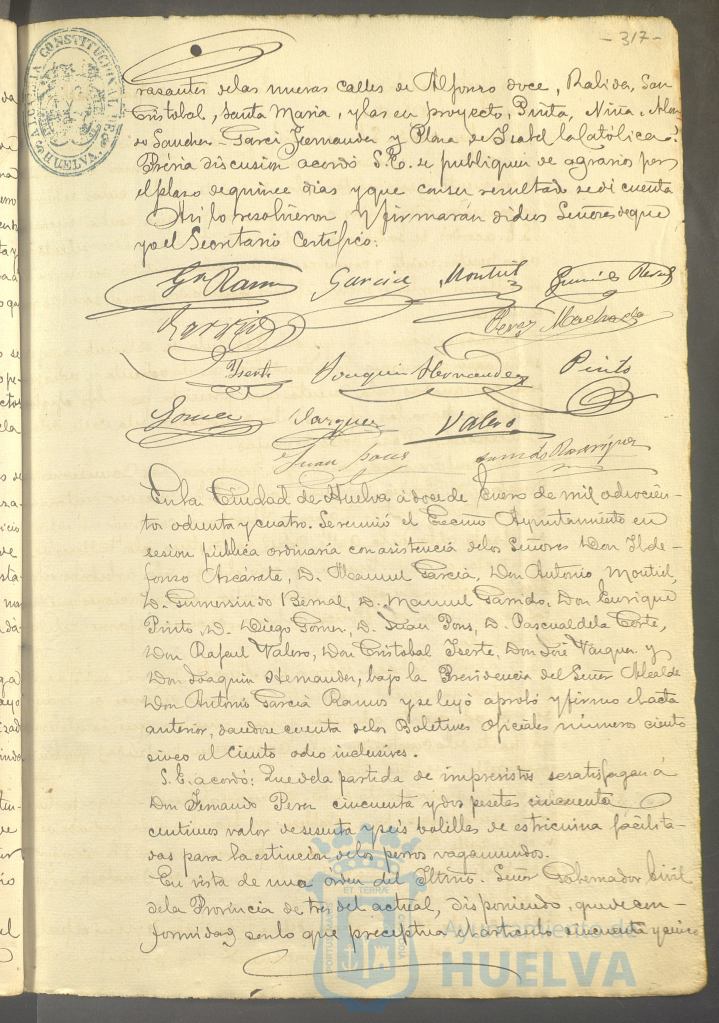 - 317 -
ALCALDIA CONSTITUCIONAL DE HUELVA
rasantes delas nuevas calles de Alfonso doce, Rabida, San
Cristobal, Santa Maria, y las en proyecto, Pinta, Niña, Alon
so Sanchez - Garci Fernandez y Plaza de Isabel la Católica.
Prévia discusion acordó S.E. se publiquen de agravios por
el plazo de quince dias y que con su resultado se dé cuenta
Asi lo resolvieron y firmarán dichos Señores de que
yo el Secretario Certifico:
Ga Ramos Garcia Montiel Gumdo Bernal
Garrido Perez Machado
Yserte Joaquin Hernandez Pinto
Gomez Vazquez Valero
Juan Pous Rodriguez
En la Ciudad de Huelva á doce de Enero de mil ochocien-
tos ochenta y cuatro. Se reunió el Excmo Ayuntamiento en
sesion pública ordinaria con asistencia delos Señores Don Ilde-
fonso Azcárate, D. Manuel Garcia, Don Antonio Montiel,
D. Gumersindo Bernal, D. Manuel Garrido, Don Enrique
Pinto, D. Diego Gomez, D. Juan Pons, D. Pascual dela Corte,
Don Rafael Valero, Don Cristobal Yserte, Don José Vazquez y
Don Joaquin Hernandez, bajo la Presidencia del Señor Alcalde
Don Antonio Garcia Ramos y se leyó aprobó y firmo el acta
anterior, dandose cuenta delos Boletines Oficiales números ciento
cinco al ciento ocho inclusives.
S.E. acordó: Que dela partida de imprevistos se satisfagan á
Don Fernando Perez cincuenta y dos pesetas cincuenta
centimos valor de sesenta y seis bolillas de estricnina facilita-
das para la estincion delos perros vagamundos.
En vista de una órden del Iltmo. Señor Gobernador Civil
dela Provincia de tres del actual, disponiendo, que de con-
formidad con lo que preceptua el artículo cincuenta y cinco
Ayuntamiento de
HUELVA